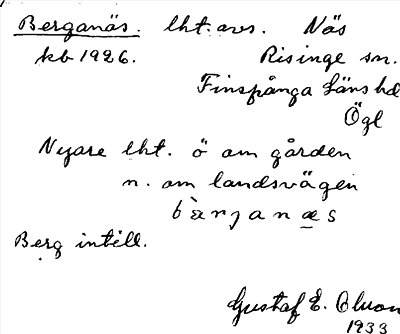 Berganäs. lht. avs. Näs
kb 1926. Risinge sn.
Finspånga läns hd
Ögl
Nyare lht. ö om gården
n. om landsvägen
bàrjanæs
Berg intill.
Gustaf E. Olson
1933